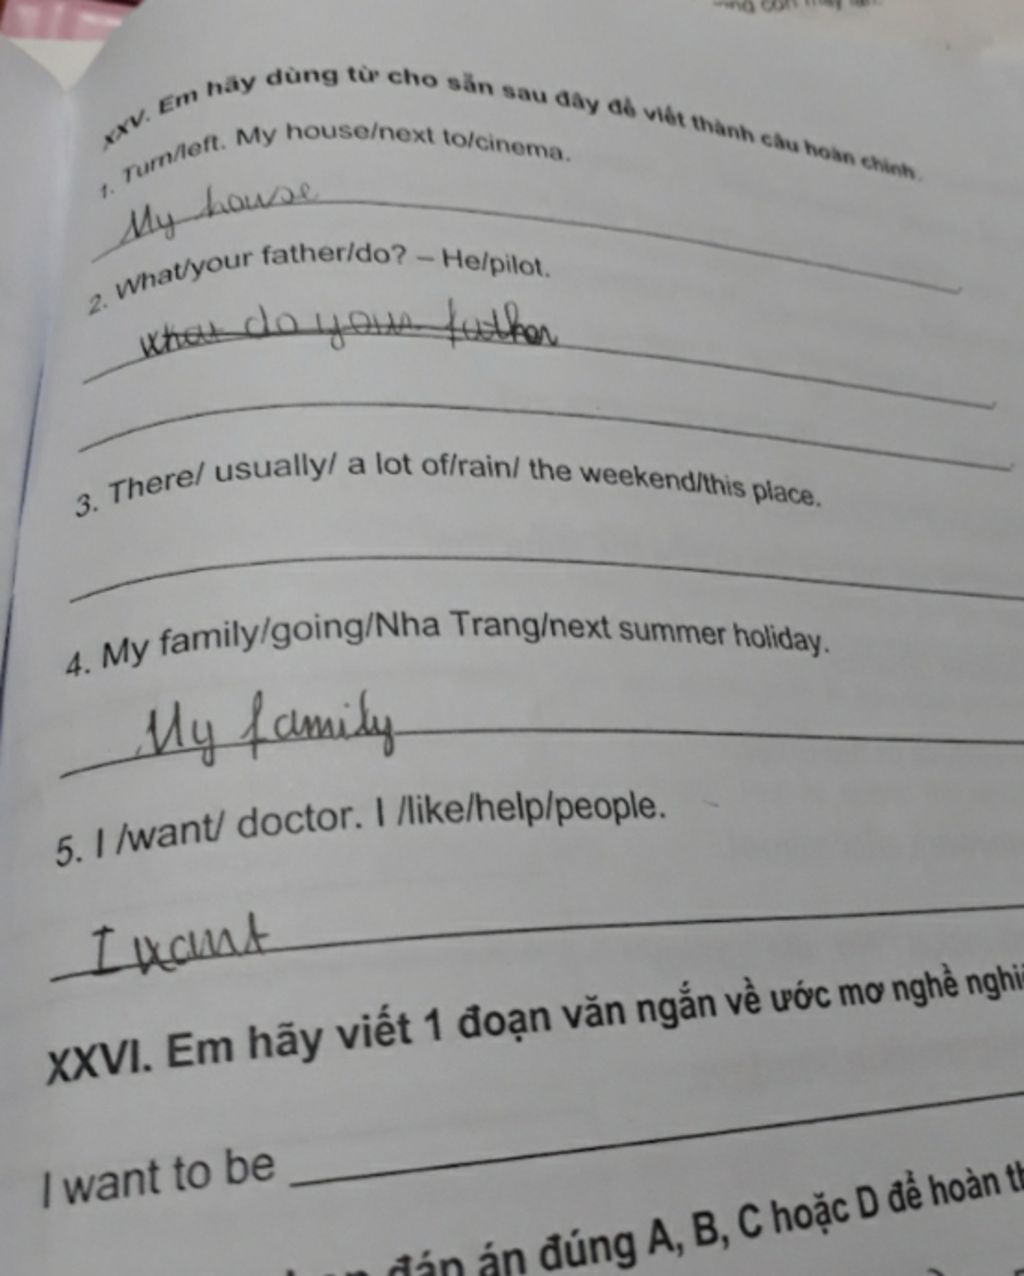 XXV. Em hãy dùng từ cho sẵn sau đây để viết thành câu hoàn chỉnh.
1. Turn/left. My house/next to/cinema.
My house
2. What/your father/do? – He/pilot.
what do your father
3. There/ usually/ a lot of/rain/ the weekend/this place.
4. My family/going/Nha Trang/next summer holiday.
My family
5. I /want/ doctor. I /like/help/people.
I want
XXVI. Em hãy viết 1 đoạn văn ngắn về ước mơ nghề
I want to be
đáp án đúng A, B, C hoặc D để hoàn